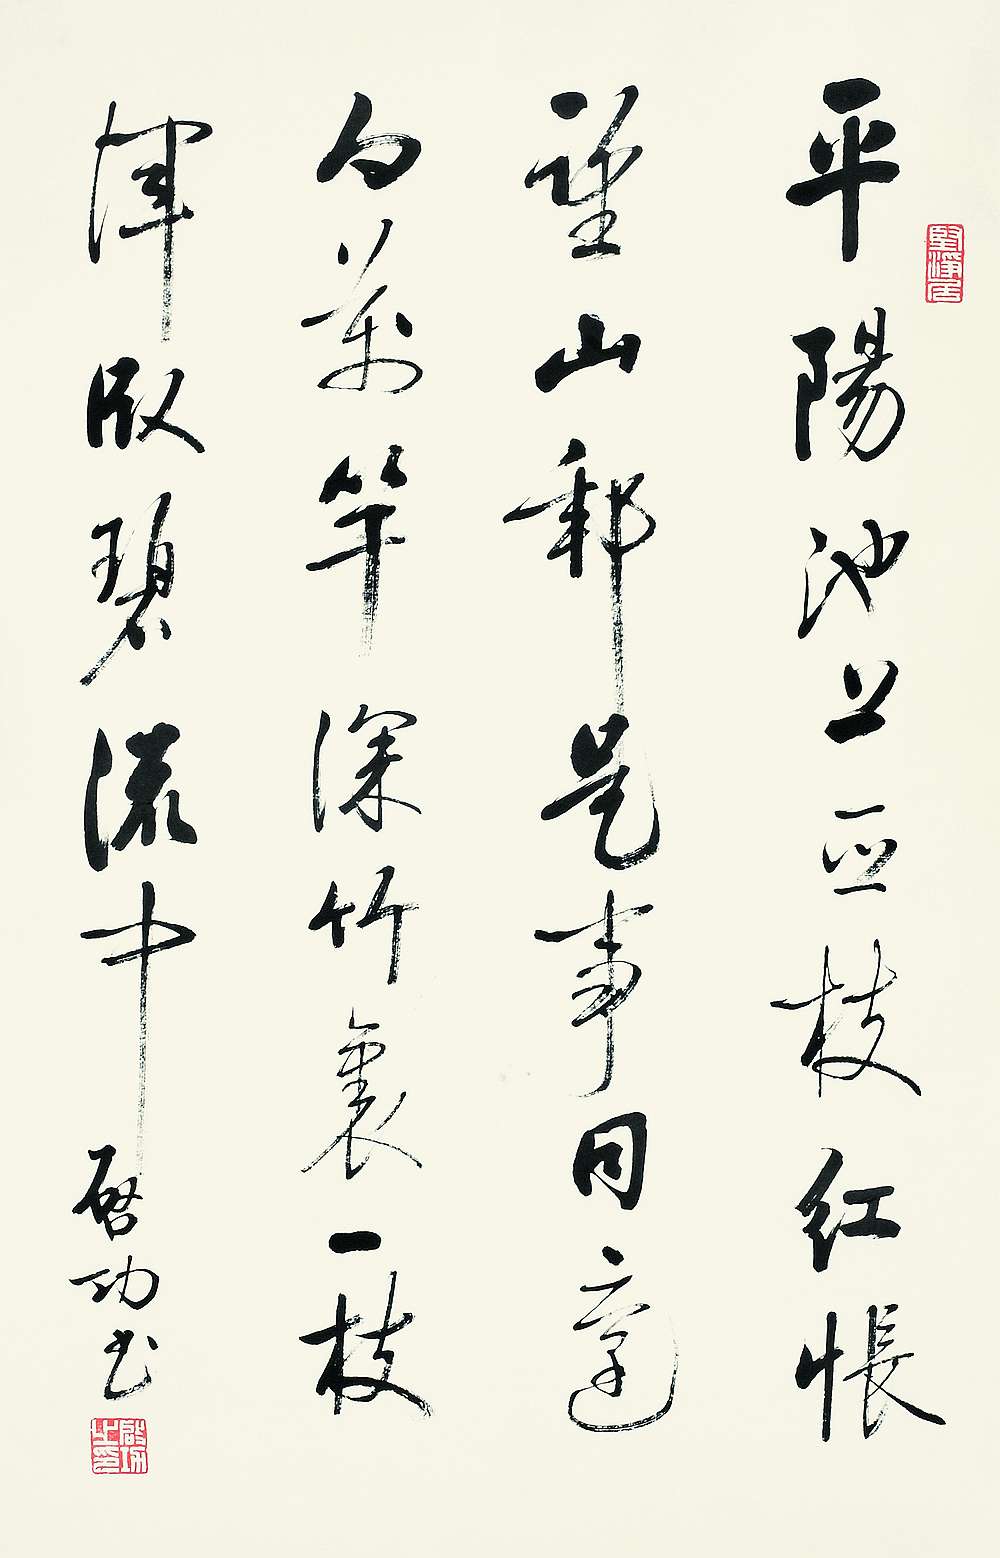 堅淨居
平陽池上亞枝紅悵
望山郵是事同還
向萬竿深竹裏一枝
渾臥碧流中 啟功書
啟功之印